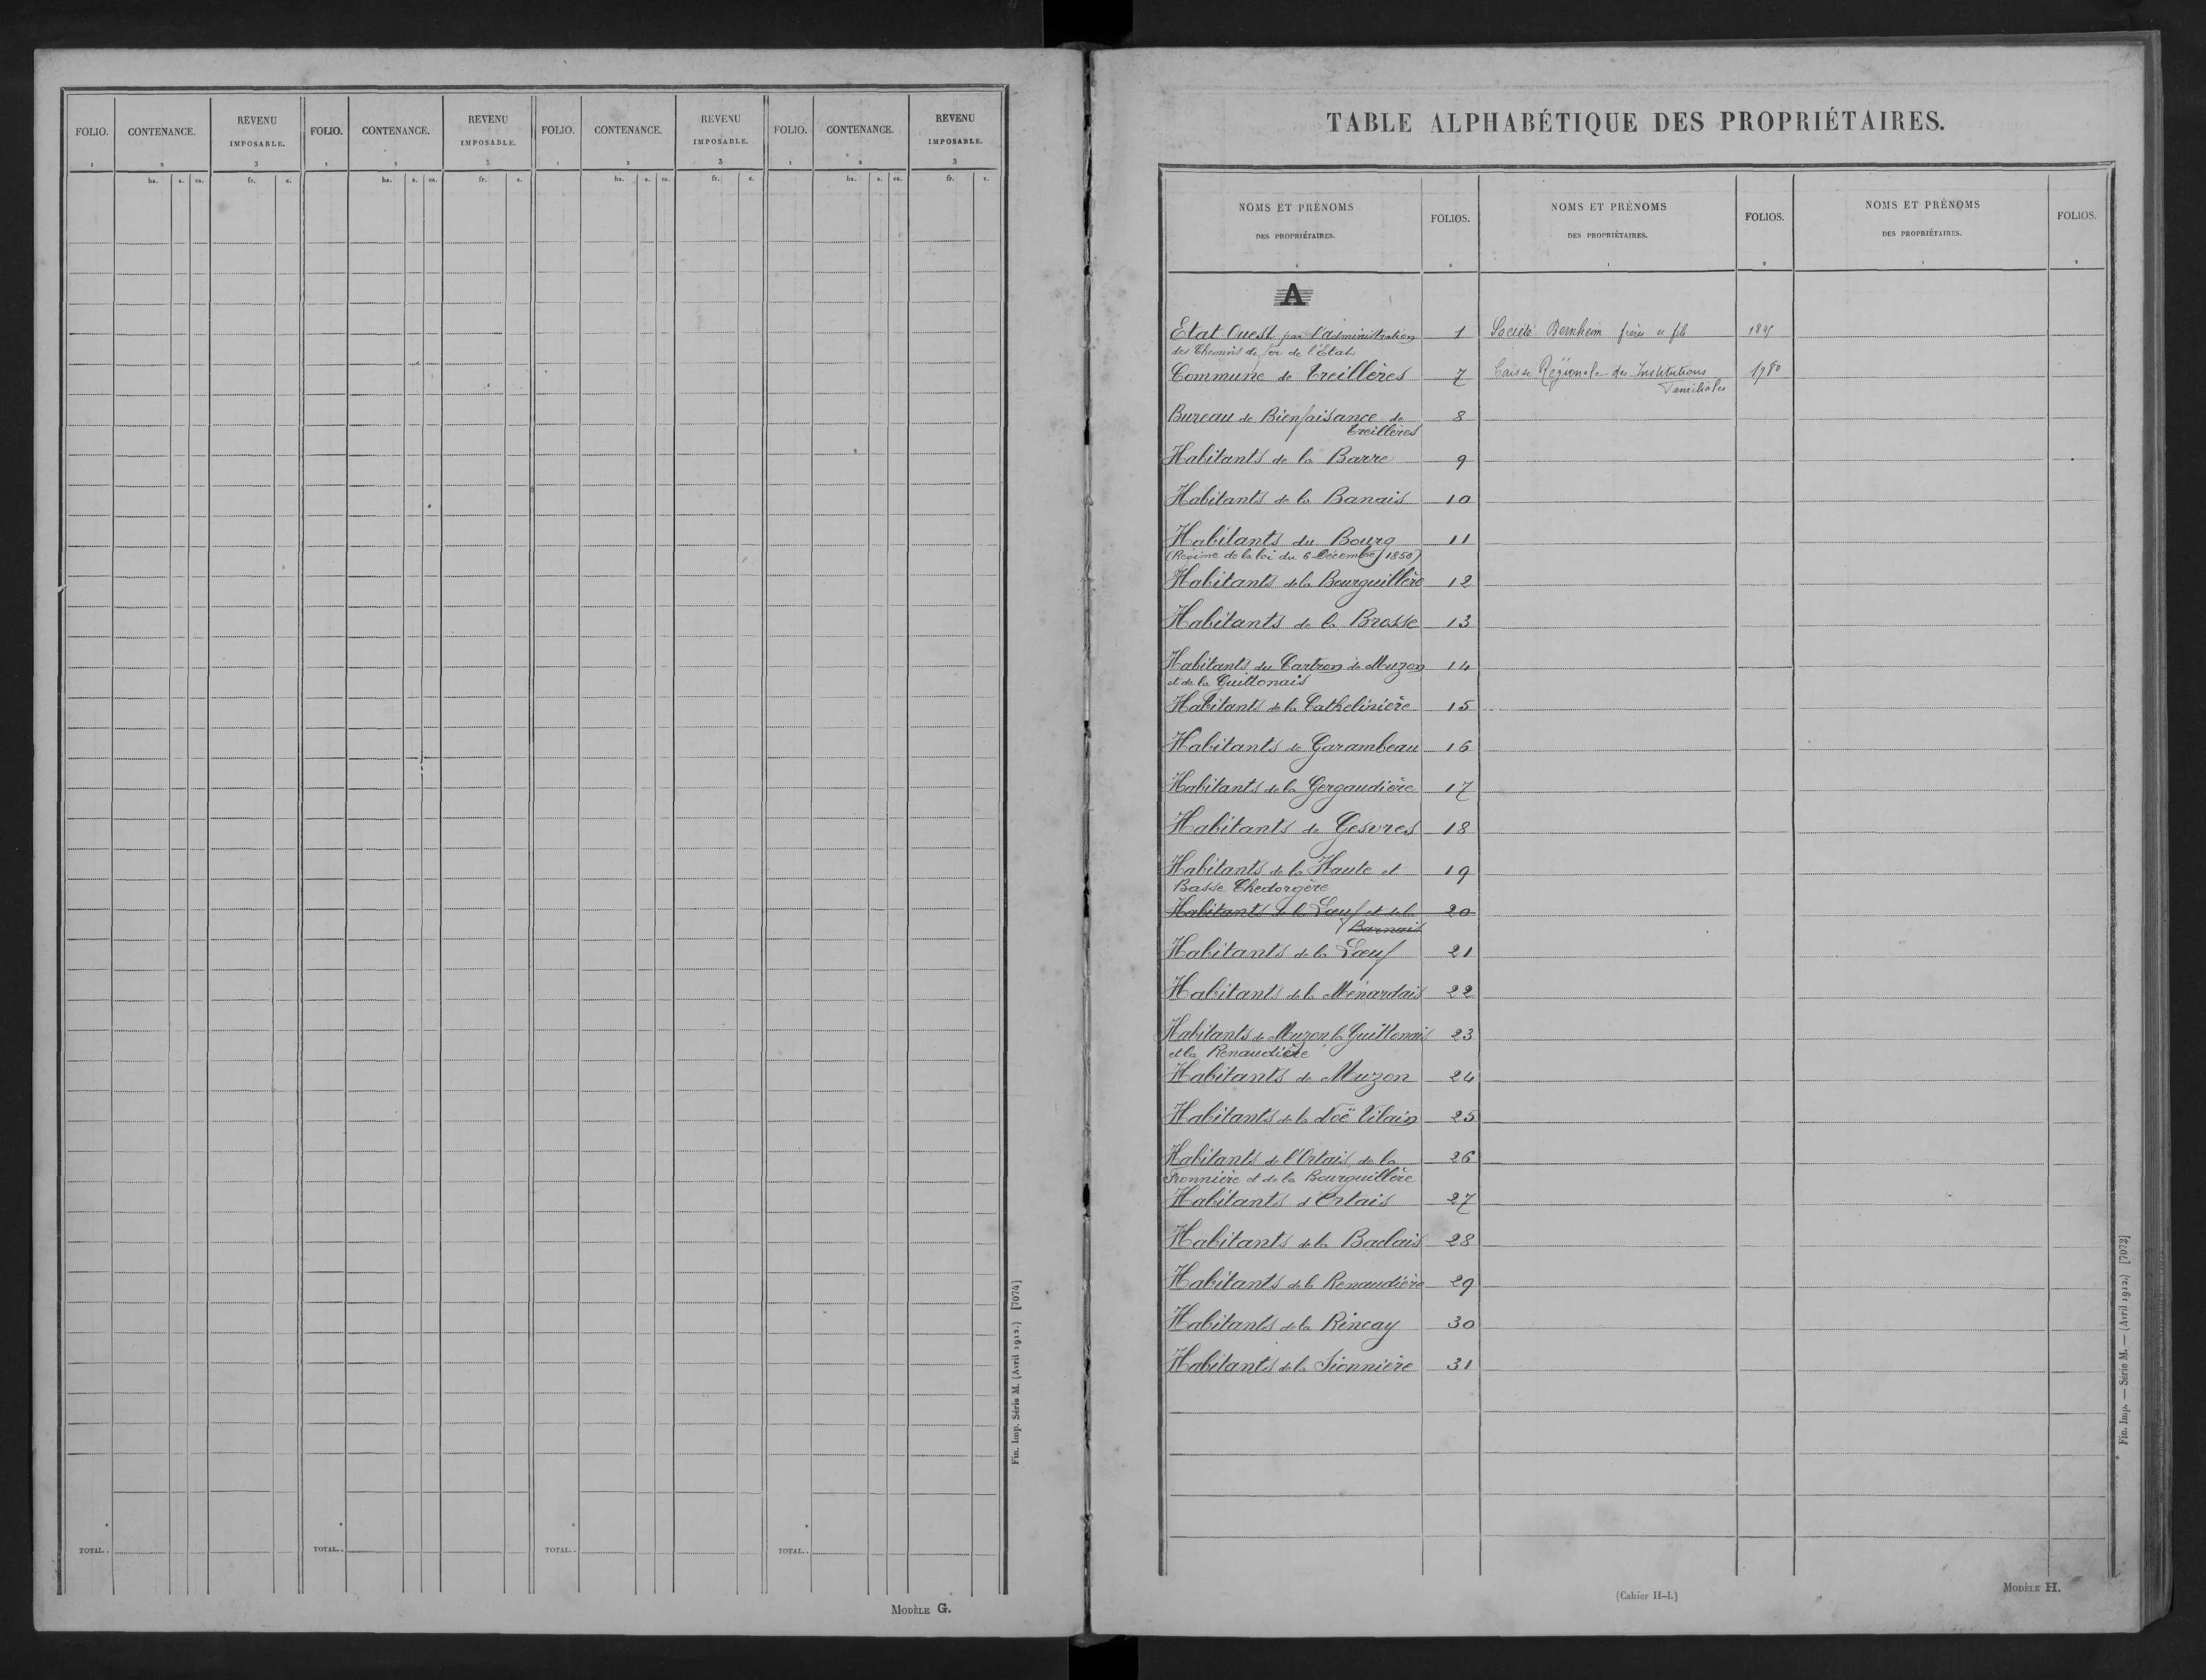 FOLIO. CONTENANCE. REVENU IMPOSABLE. FOLIO. CONTENANCE. REVENU IMPOSABLE. FOLIO. CONTENANCE. REVENU IMPOSABLE. FOLIO. CONTENANCE. REVENU IMPOSABLE.
1 2 3 1 2 3 1 2 3 1 2 3
ha. a. ca. fr. c. ha. a. ca. fr. c. ha. a. ca. fr. c. ha. a. ca. fr. c.
TOTAL.. TOTAL.. TOTAL.. TOTAL..
MODÈLE G.
Fin. Imp. Série M. (Avril 1912.) [7074]
TABLE ALPHABÉTIQUE DES PROPRIÉTAIRES.
NOMS ET PRÉNOMS DES PROPRIÉTAIRES. FOLIOS. NOMS ET PRÉNOMS DES PROPRIÉTAIRES. FOLIOS. NOMS ET PRÉNOMS DES PROPRIÉTAIRES. FOLIOS.
1 2 1 2 1 2
A
Etat Ouest par l'administration 1
des Chemins de fer de l'Etat
Commune de Treillères 7
Bureau de Bienfaisance de 8
Treillères
Habitants de la Barre 9
Habitants de la Banais 10
Habitants du Bourg 11
(Régime de la loi du 6 Décembre 1850)
Habitants de la Bourguillère 12
Habitants de la Brosse 13
Habitants du Cartron de Muzon 14
et de la Guittonais
Habitants de la Cathelinière 15
Habitants de Garambeau 16
Habitants de la Gergaudière 17
Habitants de Gesvres 18
Habitants de la Haute et 19
Basse Chedorgère
Habitants de la Lœuf et de la 20
Barnais
Habitants de la Lœuf 21
Habitants de la Ménardais 22
Habitants de Muzon la Guittonais 23
et la Renaudière
Habitants de Muzon 24
Habitants de la Noë Vilain 25
Habitants de l'Ortais, de la 26
Fronnière et de la Bourguillère
Habitants d'Ortais 27
Habitants de la Baclais 28
Habitants de la Renaudière 29
Habitants de la Rincay 30
Habitants de la Sionnière 31
Société Bernheim frères et fils
Caisse Régionale des Institutions 1980
Familiales
(Cahier H-I.)
MODÈLE H.
Fin. Imp. — Série M. — (Avril 1912.) [7072]